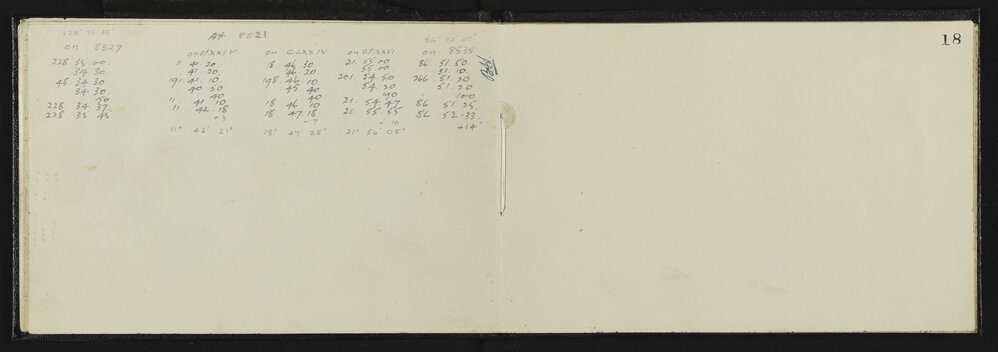 18
At 8521
on 8527 on CLXXIV on CLXXIV on CLXXVI on 8535
228 35 00 11 41.20 18 46 30 21. 55 00 86 51.50
34 30 41. 20 46 20 55 00 51. 10
48. 34. 30 191 41. 10 198. 46 10 201 54 50 266 51. 20
34. 30 40 50 45 40 54. 20 51. 20
150 40 40 190 100
228 34. 37 11 41. 10 18 46 10 21. 54. 47 86. 51. 25
228 35 45 11. 42 18 18 47 18 21. 55 55 86 52.33
-3 -7 -10 +14
11° 42' 21" 18° 47' 25" 21° 56' 05"